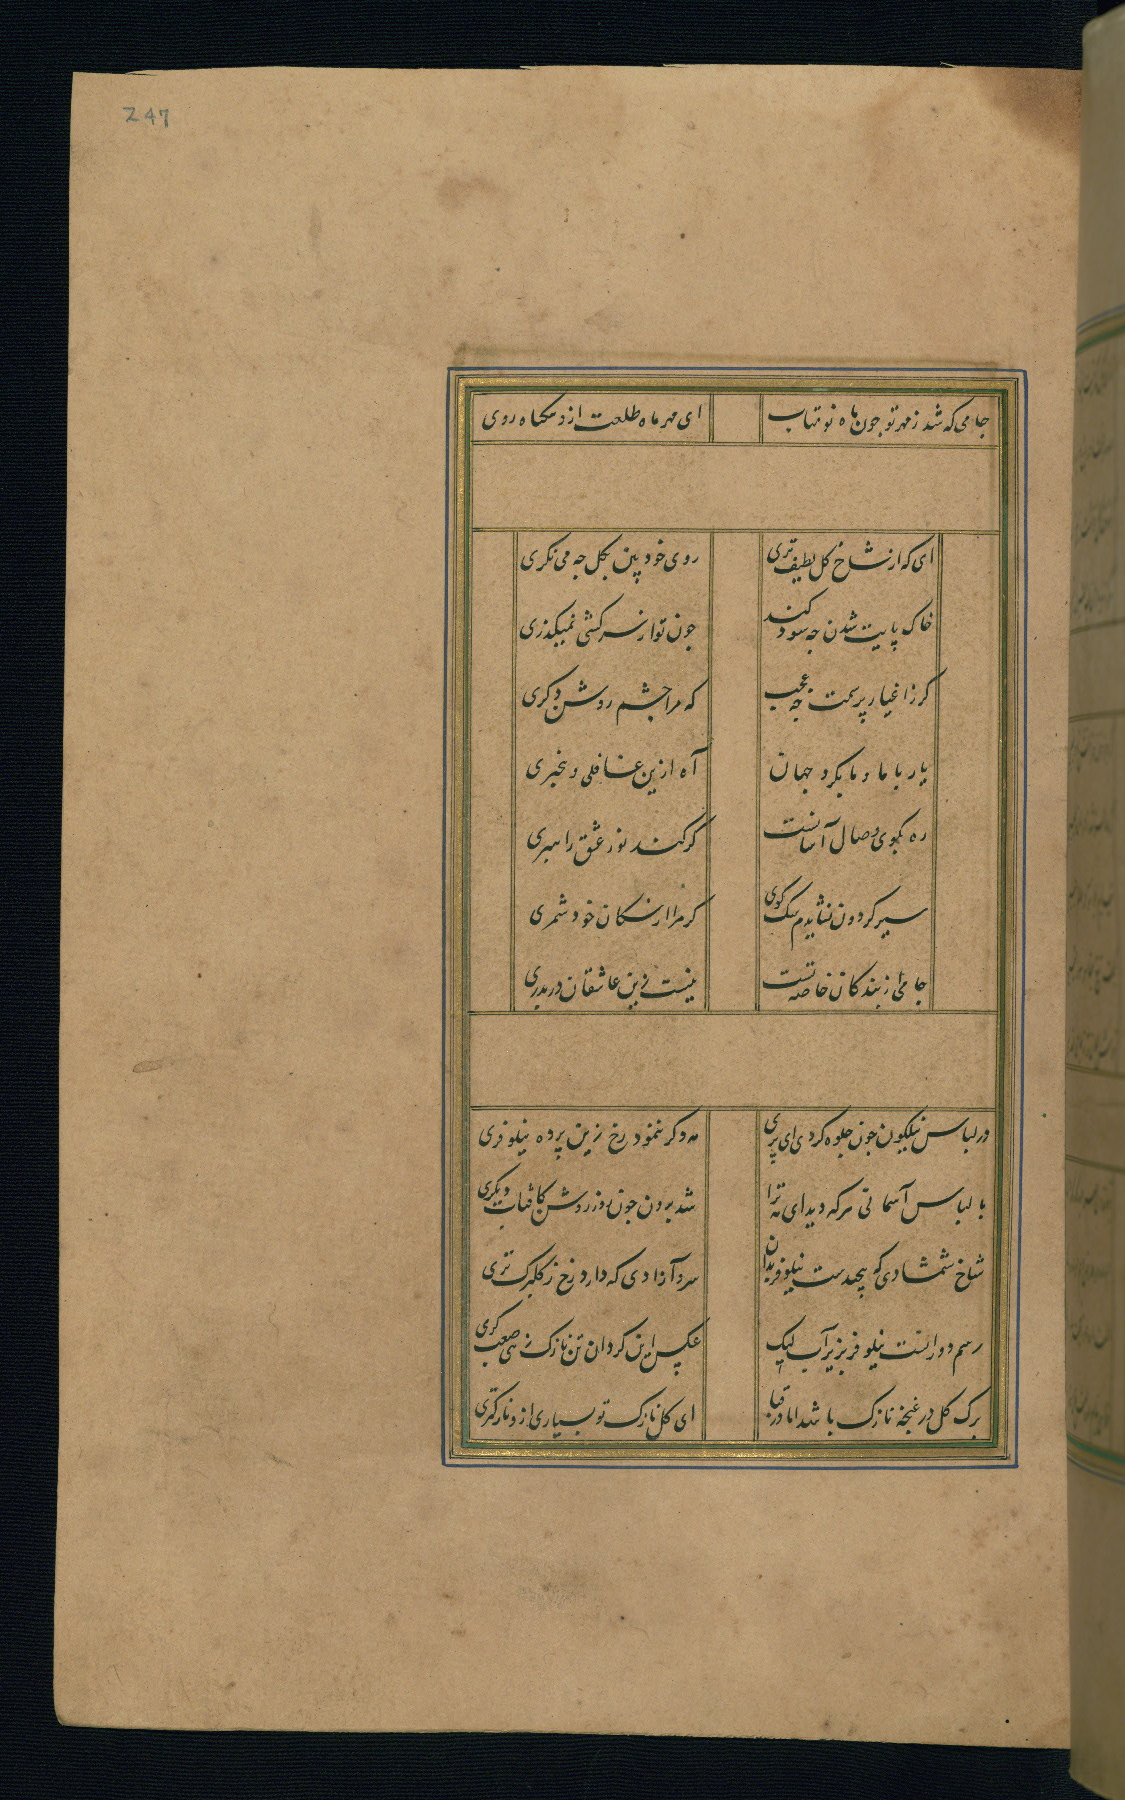 247
جامی که شد ز مهر تو جون ماه نو متاب ای مهر ماه طلعت ازو مکناه روی
ای که از شاخ کل لطیف تری روی خود بین بکل جه می نکری
خاک پایت شدن جه سود کند جون تو از سرکشی نمیکذری
کر ز اغیار پرسمت جه عجب که مرا چشم روشن دکری
یار با ما و ما بکرد جهان آه ازین غافلی و بیخبری
ره بکوی وصال آسانست کر کند نور عشق راهبری
سیر کردون نشایدم سک کوی کر مرا از سکان خود شمری
جامی از بندکان خاصه تست نیست زین عاشقان دربدری
در لباس نیلکون جون جلوه کردی ای پری مه دکر ننمود رخ زین پرده نیلوفری
با لباس آسمانی هرکه دید ای مه ترا شد برون جون روز روشن کافتاب دیکری
شاخ شمشادی که پیچیدست نیلوفر بدان سرو آزادی که دارد رخ ز کلبرک تری
رسم دورانست نیلوفر بزیر آب لیک عکس این کرد آن تن نازک زهی صنعت کری
برک کل در غنچه نازک باشد اما در قبا ای کل نازک تو بسیاری ازو نازکتری